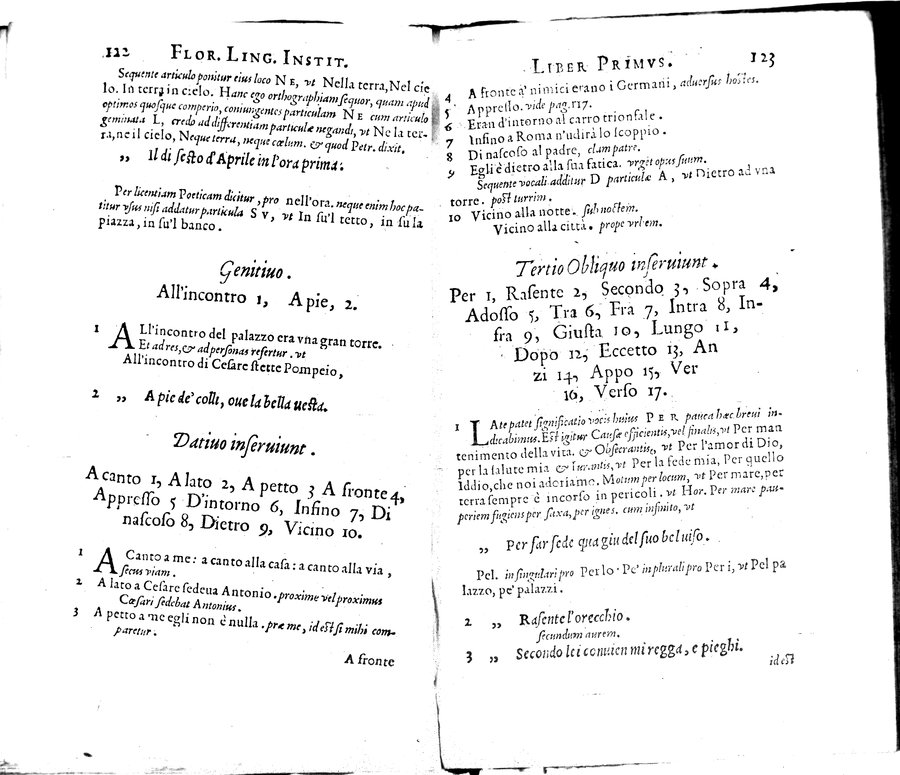 122 FLOR. LING. INSTIT.
Sequente articulo ponitur eius loco NE, vt Nella terra, Nel cie
lo. In terra in cielo. Hanc ego orthographiam sequor, quam apud
optimos quosque comperio, coniungentes particulam NE cum articulo
geminata L, credo ad differentiam particulæ negandi, vt Ne la ter-
ra, ne il cielo, Neque terra, neque cœlum. & quod Petr. dixit.
„ Il di sesto d'Aprile in l'ora prima.
Per licentiam Poeticam dicitur, pro nell'ora. neque enim hoc pa-
titur vsus nisi addatur particula SV, vt In su'l tetto, in su la
piazza, in su'l banco.
Genitiuo.
All'incontro 1, A pie, 2.
1 ALl'incontro del palazzo era vna gran torre.
Et ad res, & ad personas refertur. vt
All'incontro di Cesare stette Pompeio,
2 „ A pie de' colli, oue la bella uesta.
Datiuo inseruiunt.
A canto 1, A lato 2, A petto 3 A fronte 4,
Appresso 5 D'intorno 6, Infino 7, Di
nascoso 8, Dietro 9, Vicino 10.
1 A Canto a me: a canto alla casa: a canto alla via,
secus viam.
2 A lato a Cesare sedeua Antonio. proxime vel proximus
Cæsari sedebat Antonius.
3 A petto a me egli non è nulla. præ me, id est si mihi com-
paretur.
A fronte
LIBER PRIMVS. 123
4 A fronte a' nimici erano i Germani, aduersus hostes.
5 Appresso. vide pag. 117.
6 Eran d'intorno al carro trionfale.
7 Infino a Roma n'udirà lo scoppio.
8 Di nascoso al padre, clam patre.
9 Egli è dietro alla sua fatica. vrget opus suum.
Sequente vocali additur D particulæ A, vt Dietro ad vna
torre. post turrim.
10 Vicino alla notte. sub noctem.
Vicino alla città. prope vrbem.
Tertio Obliquo inseruiunt.
Per 1, Rasente 2, Secondo 3, Sopra 4,
Adosso 5, Tra 6, Fra 7, Intra 8, In-
fra 9, Giusta 10, Lungo 11,
Dopo 12, Eccetto 13, An
zi 14, Appo 15, Ver
16, Verso 17.
1 LAte patet significatio vocis huius PER pauca hæc breui in-
dicabimus. Est igitur Causæ efficientis, vel finalis, vt Per man
tenimento della vita. & Obsecrantis, vt Per l'amor di Dio,
per la salute mia & Iurantis, vt Per la fede mia, Per quello
Iddio, che noi adoriamo. Motum per locum, vt Per mare, per
terra sempre è incorso in pericoli. vt Hor. Per mare pau-
periem fugiens per saxa, per ignes. cum infinito, vt
„ Per far fede qua giu del suo bel uiso.
Pel. in singulari pro Per lo. Pe' in plurali pro Per i, vt Pel pa
lazzo, pe' palazzi.
2 „ Rasente l'orecchio.
secundum aurem.
3 „ Secondo lei conuien mi regga, e pieghi.
id est